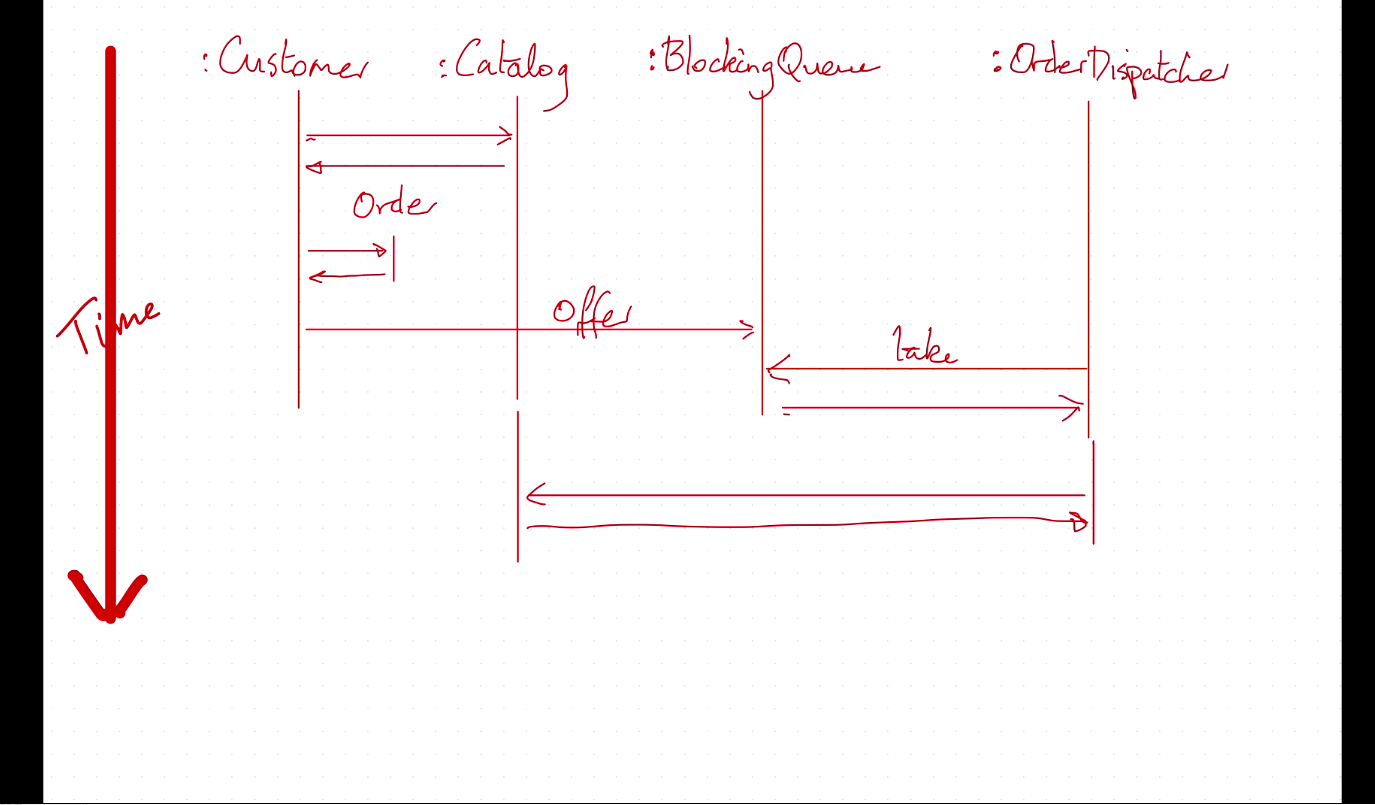 :Customer :Catalog :BlockingQueue :OrderDispatcher
Order
Offer
Time
take